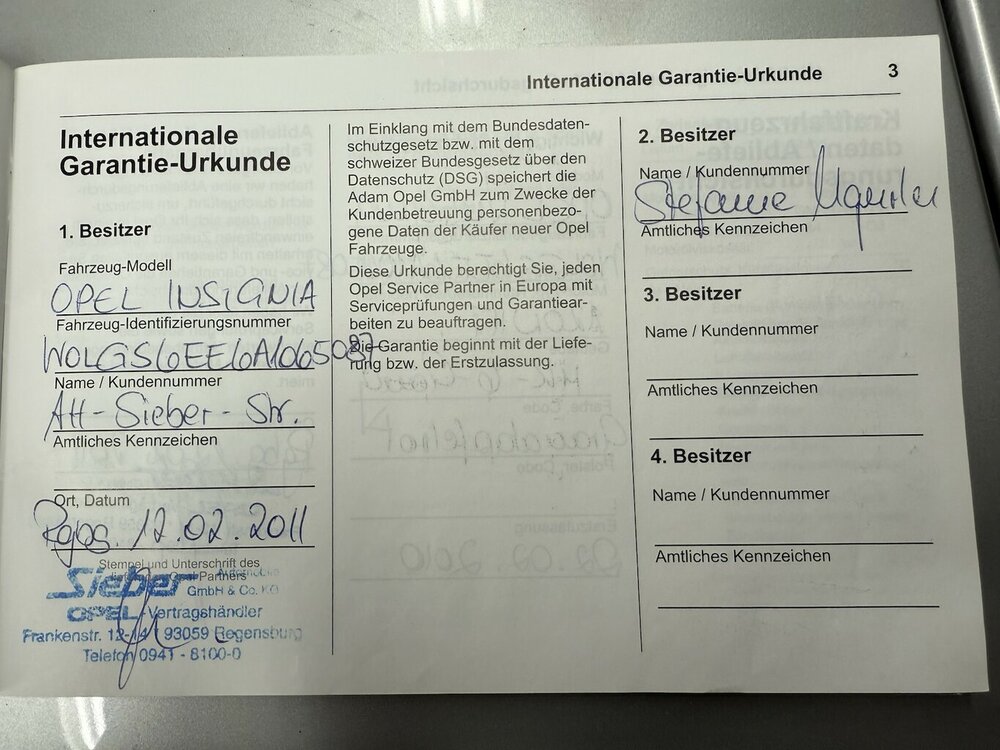 Internationale Garantie-Urkunde 3
Internationale
Garantie-Urkunde
1. Besitzer
Fahrzeug-Modell
OPEL INSIGNIA
Fahrzeug-Identifizierungsnummer
W0LGS6EE6A1065087
Name / Kundennummer
AH-Sieber-Str.
Amtliches Kennzeichen
Ort, Datum
Rgbg. 12.02.2011
Stempel und Unterschrift des
Opel Partners
Sieber Automobile
GmbH & Co. KG
OPEL-Vertragshändler
Frankenstr. 12-14 93059 Regensburg
Telefon 0941 - 8100-0
Im Einklang mit dem Bundesdaten-
schutzgesetz bzw. mit dem
schweizer Bundesgesetz über den
Datenschutz (DSG) speichert die
Adam Opel GmbH zum Zwecke der
Kundenbetreuung personenbezo-
gene Daten der Käufer neuer Opel
Fahrzeuge.
Diese Urkunde berechtigt Sie, jeden
Opel Service Partner in Europa mit
Serviceprüfungen und Garantiear-
beiten zu beauftragen.
Die Garantie beginnt mit der Liefe-
rung bzw. der Erstzulassung.
2. Besitzer
Name / Kundennummer
Stefanie
Amtliches Kennzeichen
3. Besitzer
Name / Kundennummer
Amtliches Kennzeichen
4. Besitzer
Name / Kundennummer
Amtliches Kennzeichen